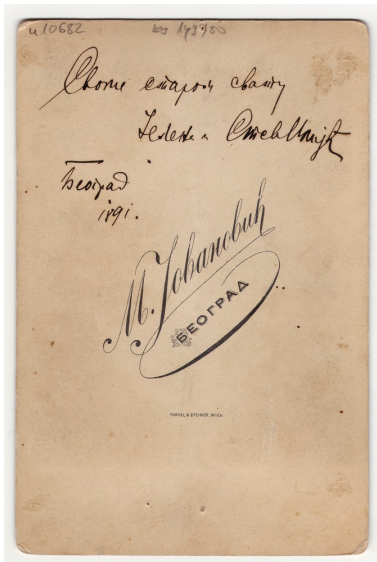 и 10682
Своме старом свату
Јелена и Стева
Београд
1891.
М. Јовановић
БЕОГРАД
TÜRKEL & STEINER, WIEN